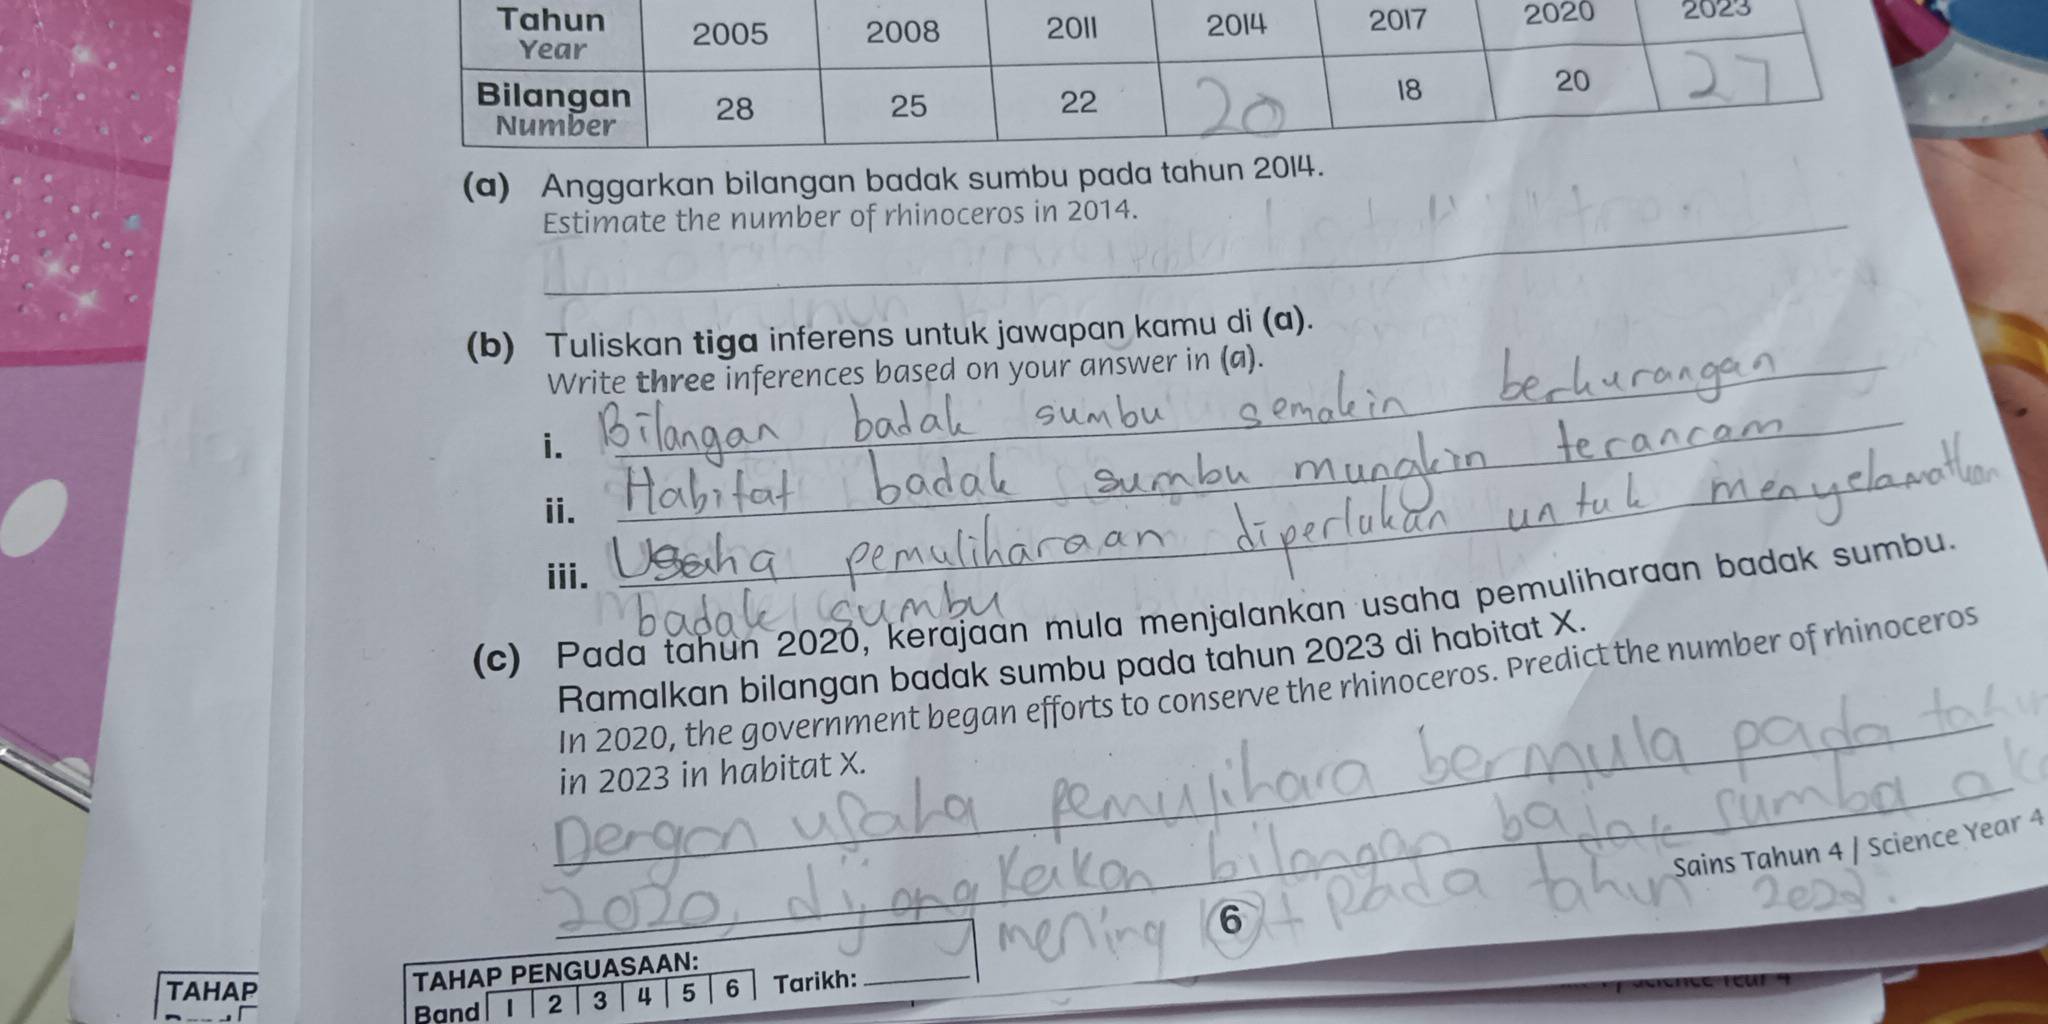 Tahun 2005 2008 2011 2014 2017 2020 2023
Year
Bilangan 28 25 22 20 18 20 27
Number
(a) Anggarkan bilangan badak sumbu pada tahun 2014.
Estimate the number of rhinoceros in 2014.
(b) Tuliskan tiga inferens untuk jawapan kamu di (a).
Write three inferences based on your answer in (a).
i. Bilangan badak sumbu semakin berkurangan
ii. Habitat badak sumbu mungkin terancam
iii. Usaha pemuliharaan diperlukan untuk menyelamatkan
badak sumbu
(c) Pada tahun 2020, kerajaan mula menjalankan usaha pemuliharaan badak sumbu.
Ramalkan bilangan badak sumbu pada tahun 2023 di habitat X.
In 2020, the government began efforts to conserve the rhinoceros. Predict the number of rhinoceros
in 2023 in habitat X.
Dengan usaha pemulihara bermula pada tahun
2020, dijangkakan bilangan badak sumba ak
mening kat pada tahun 2023.
Sains Tahun 4 | Science Year 4
6
TAHAP PENGUASAAN:
Band 1 2 3 4 5 6 Tarikh:
TAHAP